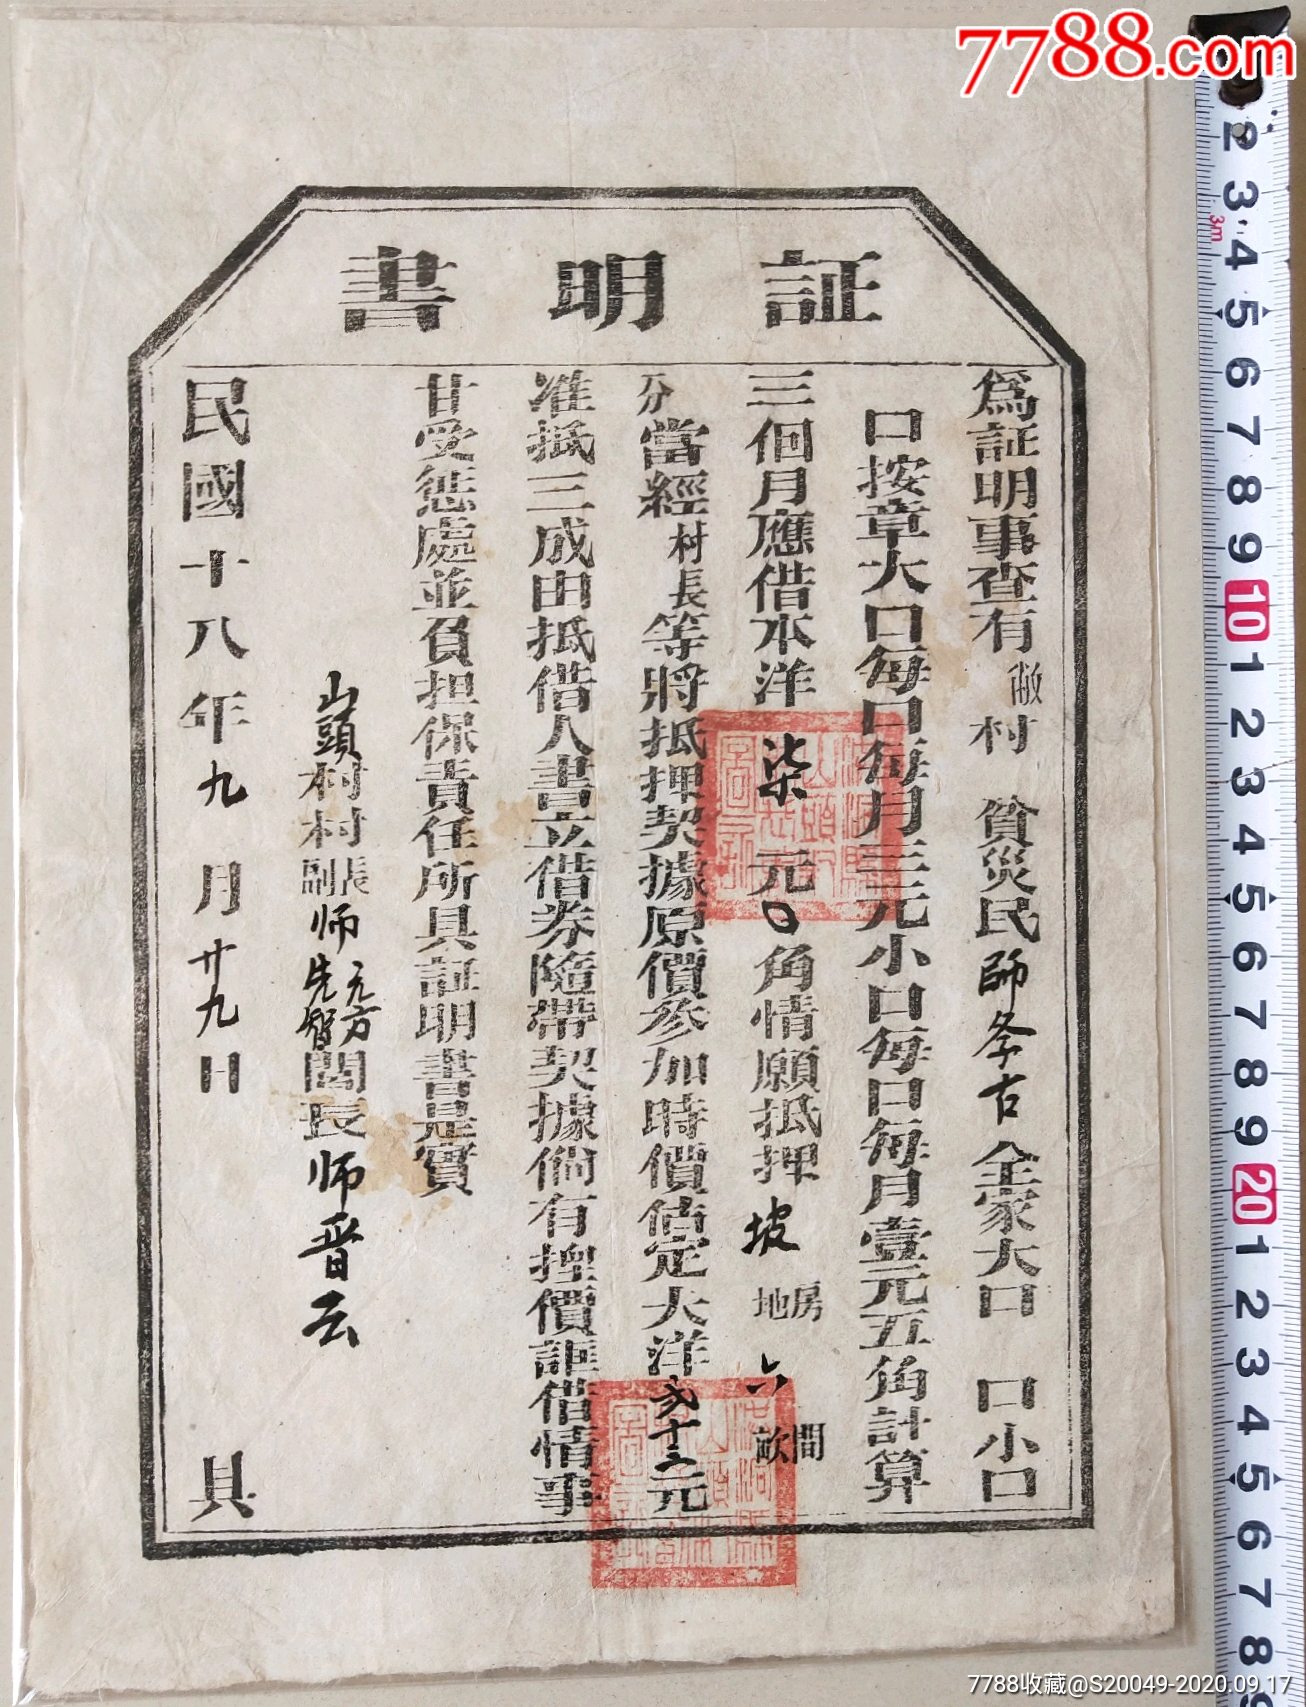 7788.com
証明書
為証明事查有敝村 貧災民師冬古全家大口 口小口
口按章大口每口每月三元小口每口每月壹元五角計算
三個月應借本洋柒元〇角情願抵押坡房地六間畝
分當經村長等將抵押契據原價參加時價估定大洋弍十三元
准抵三成由抵借人書立借券隨帶契據倘有捏價誆借情事
甘受懲處並負担保責任所具証明書是實
山頭村村長副师元方先智閭長师晋云
民國十八年九月廿九日 具
2 3 4 5 6 7 8 9 10 1 2 3 4 5 6 7 8 9 20 1 2 3 4 5 6 7 8
3m
7788收藏@S20049-2020.09.17